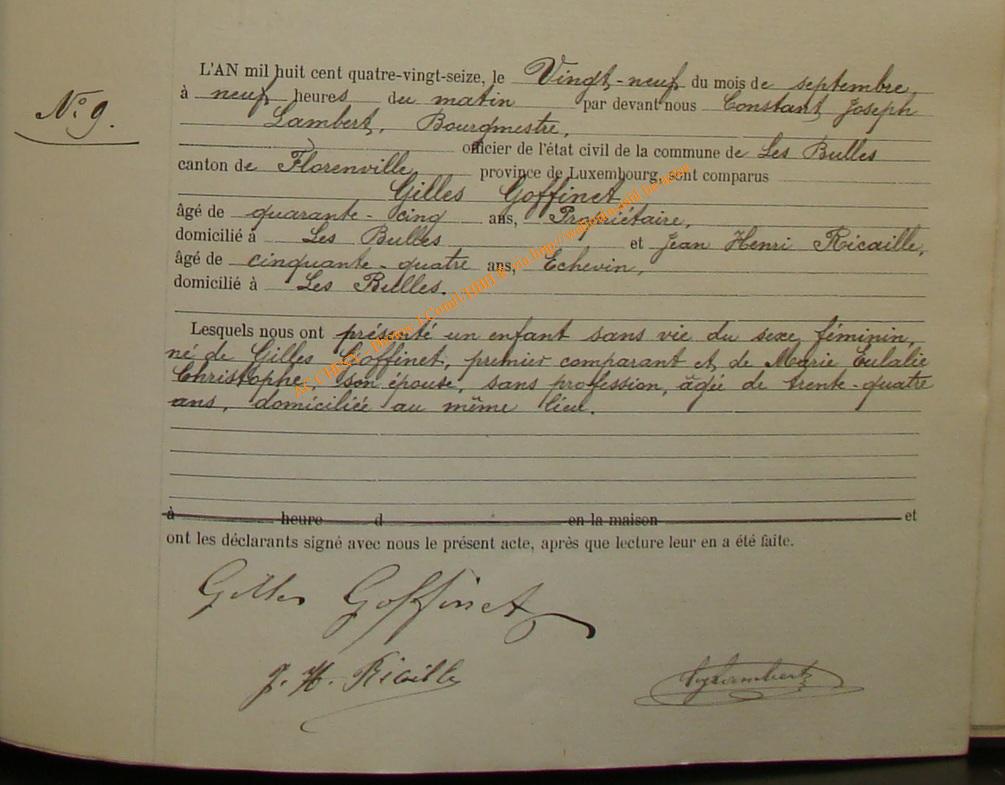 L'AN mil huit cent quatre-vingt-seize, le Vingt-neuf du mois de septembre,
N° 9.
à neuf heures du matin par devant nous Constant Joseph
Lambert, Bourgmestre,
officier de l'état civil de la commune de Les Bulles
canton de Florenville province de Luxembourg, sont comparus
Gilles Goffinet,
âgé de quarante-cinq ans, Propriétaire,
domicilié à Les Bulles et Jean Henri Ricaille,
âgé de cinquante-quatre ans, Echevin,
domicilié à Les Bulles.
Lesquels nous ont présenté un enfant sans vie du sexe féminin,
né de Gilles Goffinet, premier comparant et de Marie Eulalie
Christophe, son épouse, sans profession, âgée de trente-quatre
ans, domiciliée au même lieu.
à heure d en la maison et
ont les déclarants signé avec nous le présent acte, après que lecture leur en a été faite.
Gilles Goffinet
J. H. Ricaille
Lambert